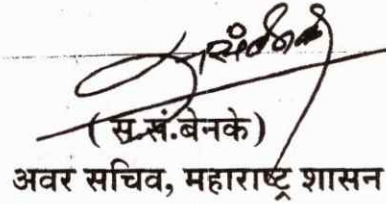 (स.सं.बेनके)
अवर सचिव, महाराष्ट्र शासन